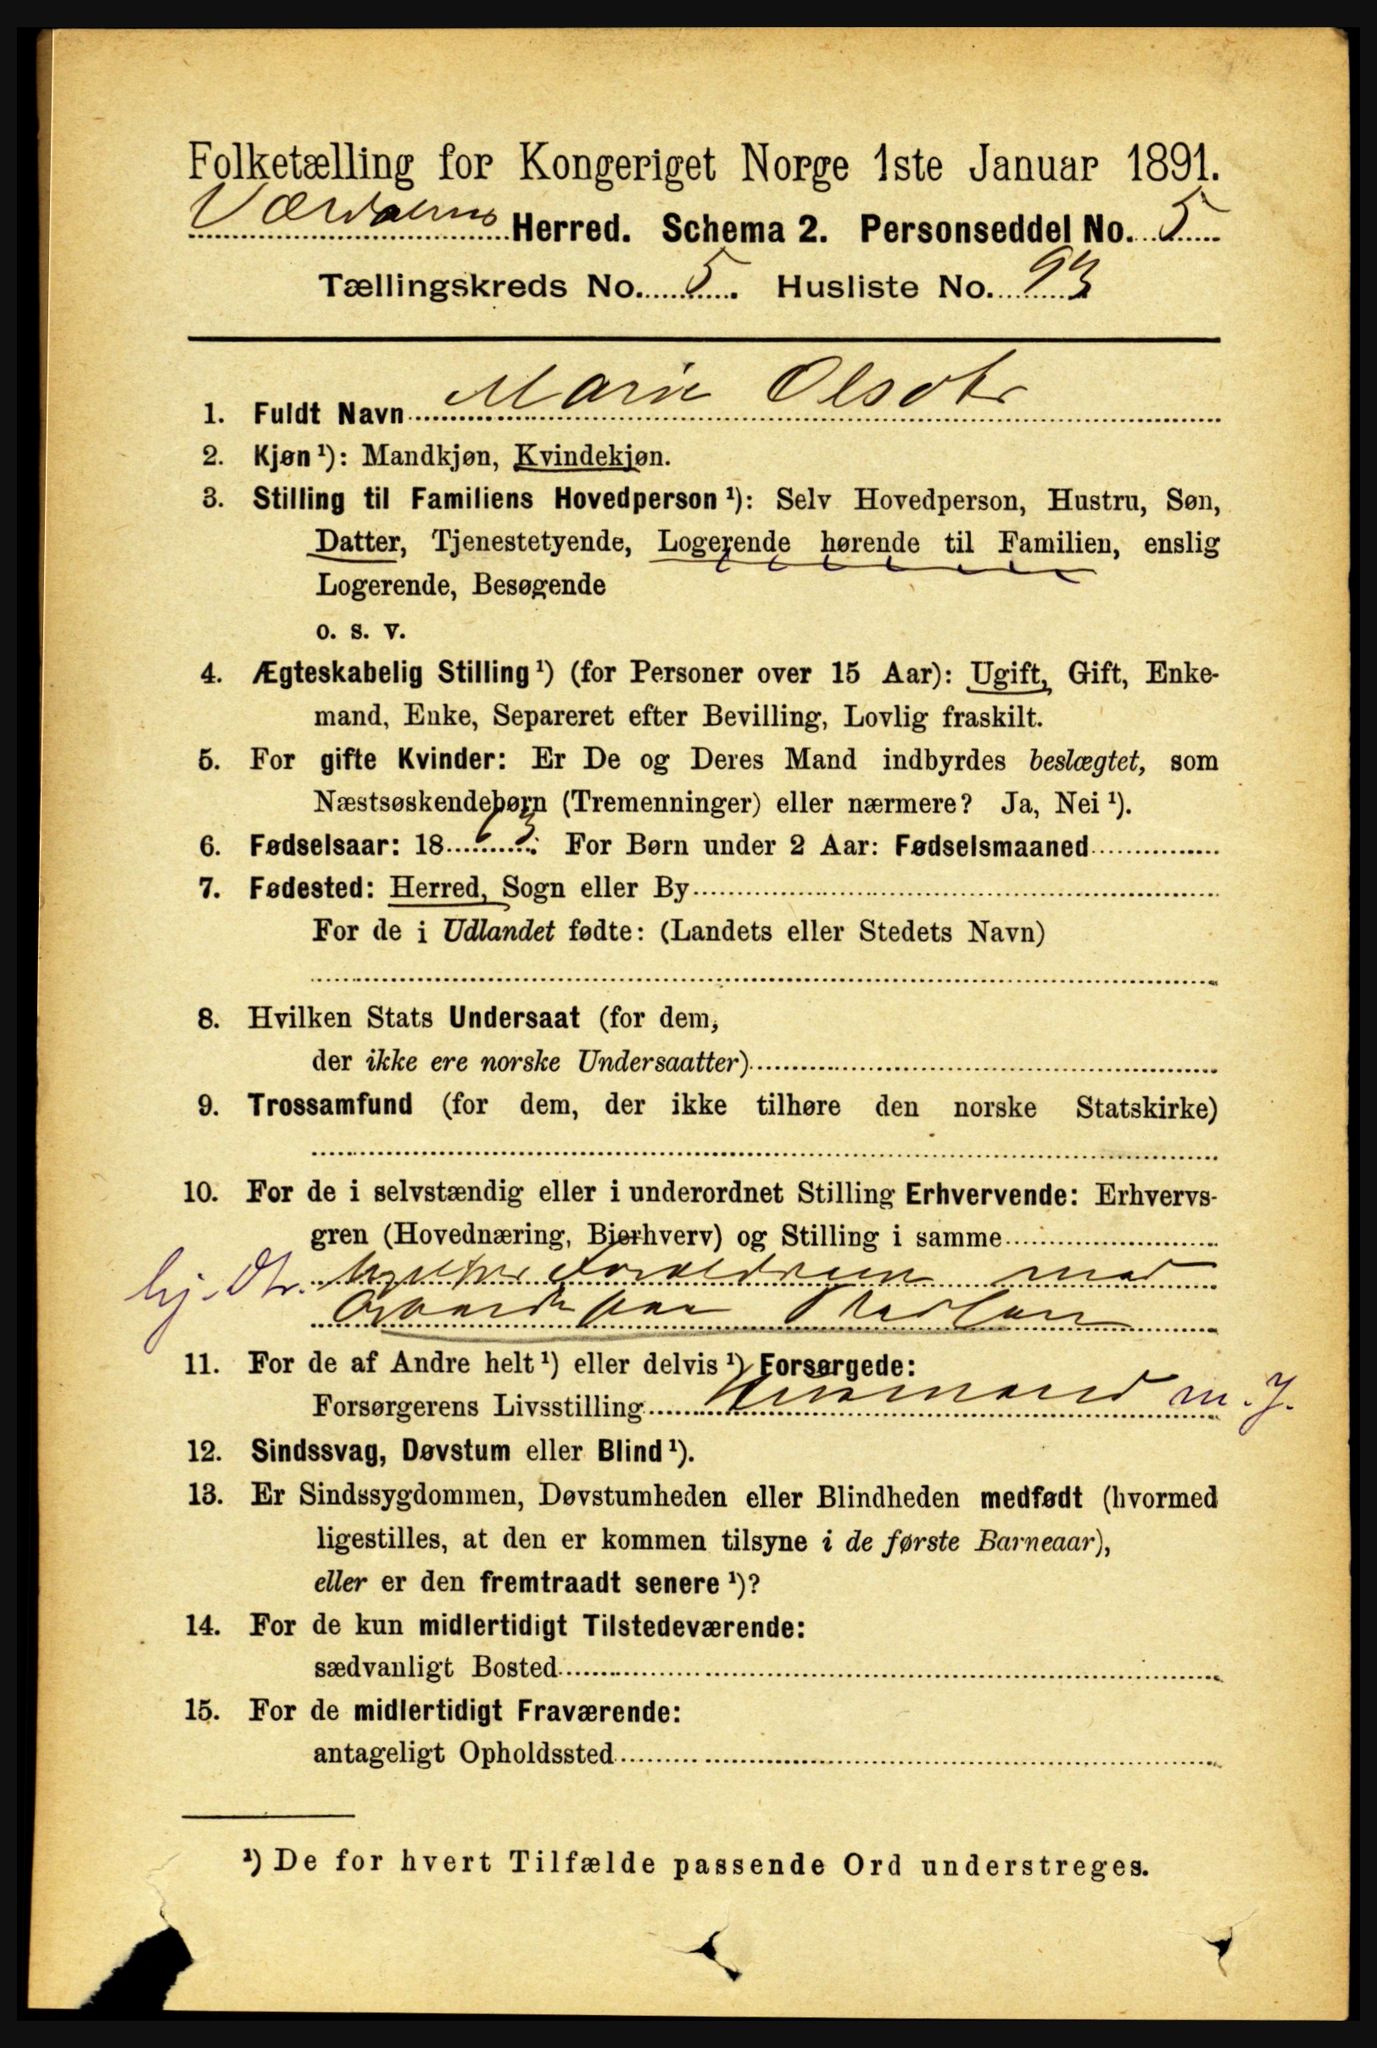 Folketælling for Kongeriget Norge 1ste Januar 1891.
Værdalens Herred. Schema 2. Personseddel No. 5
Tællingskreds No. 5. Husliste No. 93
1. Fuldt Navn Marie Olsdtr
2. Kjøn ¹): Mandkjøn, Kvindekjøn.
3. Stilling til Familiens Hovedperson ¹): Selv Hovedperson, Hustru, Søn,
Datter, Tjenestetyende, Logerende hørende til Familien, enslig
Logerende, Besøgende
o. s. v.
4. Ægteskabelig Stilling ¹) (for Personer over 15 Aar): Ugift, Gift, Enke-
mand, Enke, Separeret efter Bevilling, Lovlig fraskilt.
5. For gifte Kvinder: Er De og Deres Mand indbyrdes beslægtet, som
Næstsøskendebørn (Tremenninger) eller nærmere? Ja, Nei ¹).
6. Fødselsaar: 1873. For Børn under 2 Aar: Fødselsmaaned
7. Fødested: Herred, Sogn eller By
For de i Udlandet fødte: (Landets eller Stedets Navn)
8. Hvilken Stats Undersaat (for dem,
der ikke ere norske Undersaatter)
9. Trossamfund (for dem, der ikke tilhøre den norske Statskirke)
10. For de i selvstændig eller i underordnet Stilling Erhvervende: Erhvervs-
gren (Hovednæring, Bierhverv) og Stilling i samme
hj. Dtr. hjelper Forældrene med
Arbeide paa Pladsen
11. For de af Andre helt ¹) eller delvis ¹) Forsørgede:
Forsørgerens Livsstilling Husmand m. J.
12. Sindssvag, Døvstum eller Blind ¹).
13. Er Sindssygdommen, Døvstumheden eller Blindheden medfødt (hvormed
ligestilles, at den er kommen tilsyne i de første Barneaar),
eller er den fremtraadt senere ¹)?
14. For de kun midlertidigt Tilstedeværende:
sædvanligt Bosted
15. For de midlertidigt Fraværende:
antageligt Opholdssted
¹) De for hvert Tilfælde passende Ord understreges.